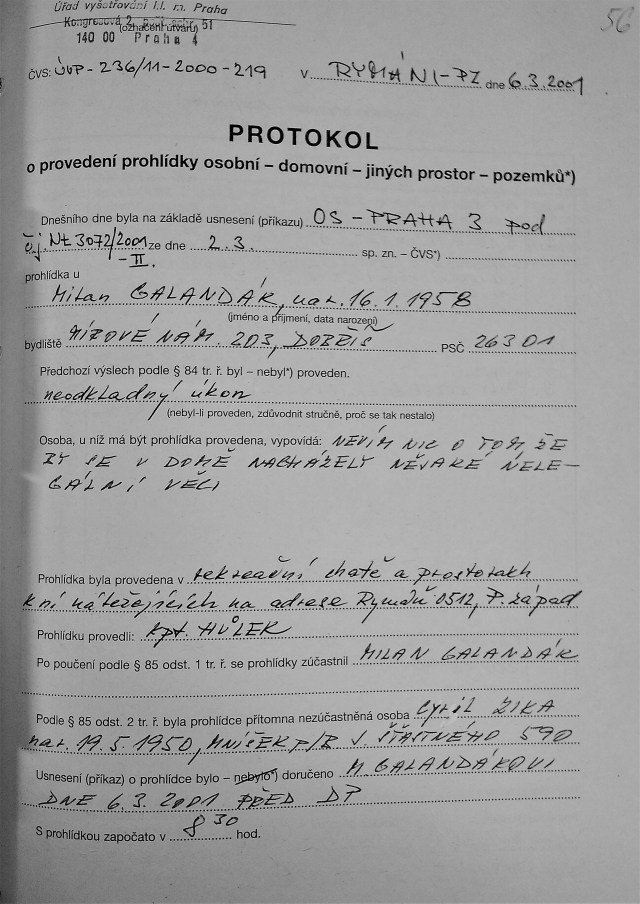 Úřad vyšetřování hl. m. Praha
Kongresová 2, 51
(označení útvaru)
140 00 Praha 4
56
ČVS: ÚVP - 236/11-2000-219 V RYMÁNI-PZ dne 6.3.2001
PROTOKOL
o provedení prohlídky osobní – domovní – jiných prostor – pozemků*)
Dnešního dne byla na základě usnesení (příkazu) OS-PRAHA 3 pod
č.j. Nt 3072/2001 ze dne 2.3. sp. zn. – ČVS*)
-II.
prohlídka u
Milan GALANDÁK, nar. 16.1.1958
(jméno a příjmení, data narození)
bydliště MÍROVÉ NÁM. 203, DOBŘÍŠ PSČ 263 01
Předchozí výslech podle § 84 tr. ř. byl – nebyl*) proveden.
neodkladný úkon
(nebyl-li proveden, zdůvodnit stručně, proč se tak nestalo)
Osoba, u níž má být prohlídka provedena, vypovídá: NEVÍM NIC O TOM ŽE
BY SE V DOMĚ NACHÁZELY NĚJAKÉ NELE-
GÁLNÍ VĚCI
Prohlídka byla provedena v rekreační chatě a prostorách
k ní náležejících na adrese Rymáň 0512, P. západ
Prohlídku provedli: kpt. HŮLEK
Po poučení podle § 85 odst. 1 tr. ř. se prohlídky zúčastnil MILAN GALANDÁK
Podle § 85 odst. 2 tr. ř. byla prohlídce přítomna nezúčastněná osoba Cyril ZIKA
nar. 19.5.1950, MNÍŠEK P/B J. ŠŤASTNÉHO 590
Usnesení (příkaz) o prohlídce bylo – nebylo*) doručeno M. GALANDÁKOVI
DNE 6.3.2001 PŘED DP
S prohlídkou započato v 8 30 hod.